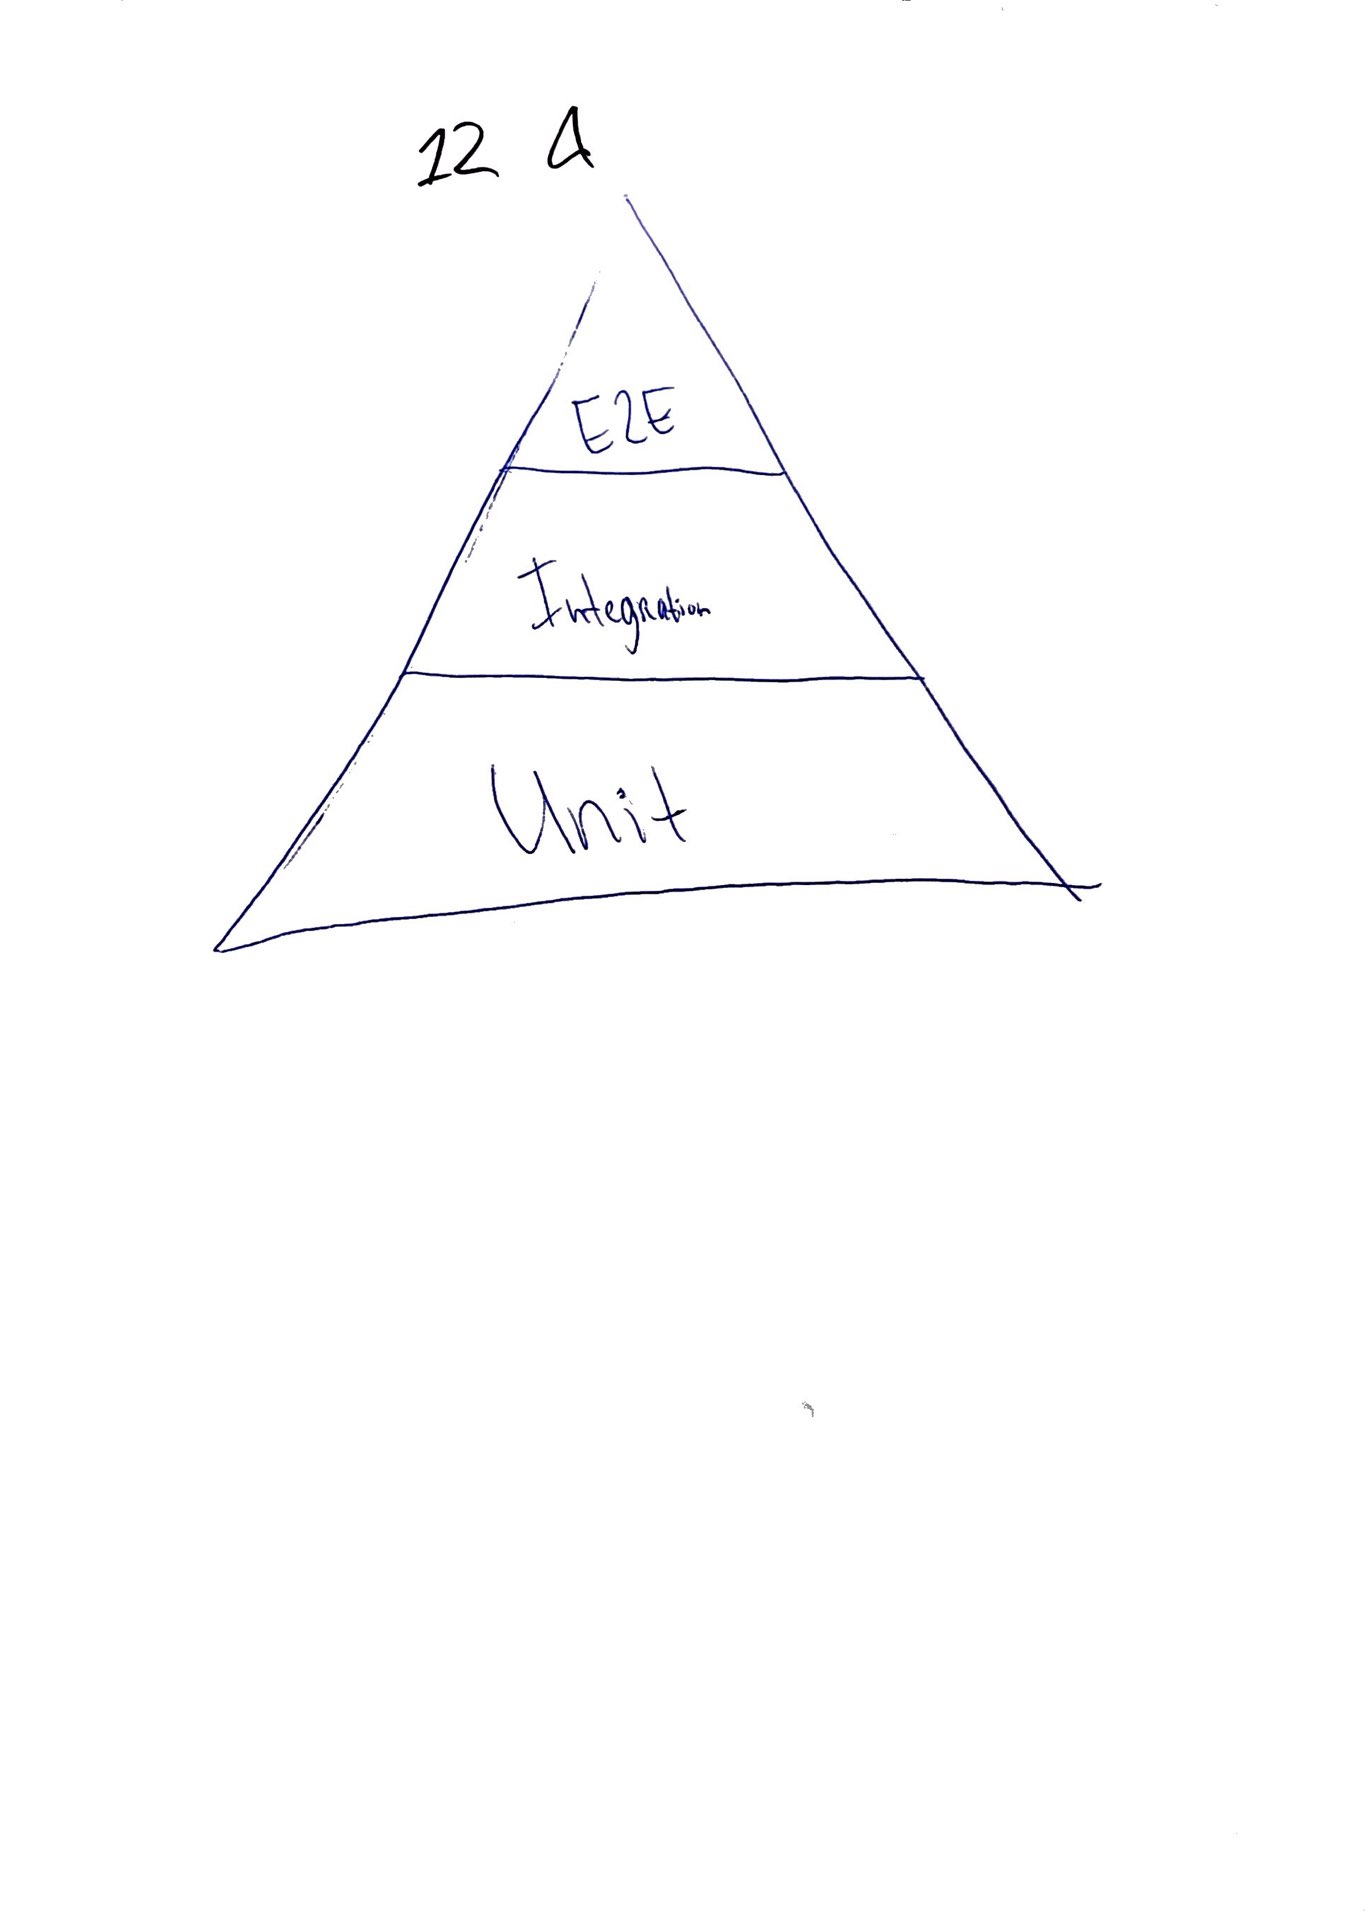 12 a
E2E
Integration
Unit